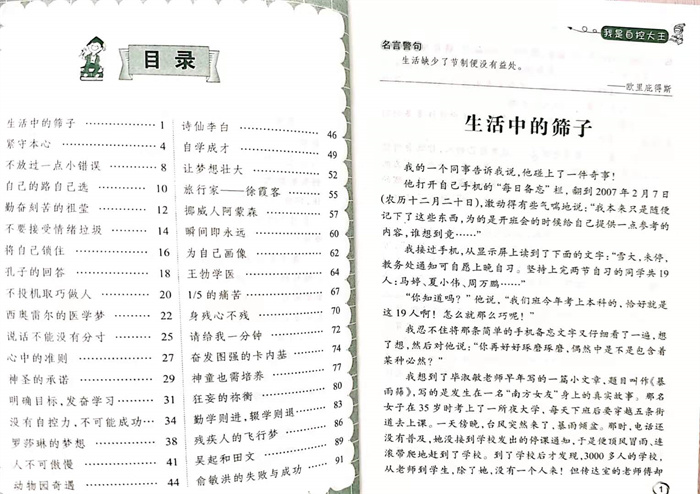 目录
生活中的筛子 1
紧守本心 4
不放过一点小错误 8
自己的路自己选 10
勤奋刻苦的祖莹 12
不要接受情绪垃圾 14
将自己锁住 16
孔子的回答 18
不投机取巧做人 20
西奥雷尔的医学梦 22
说话不能没有分寸 25
心中的准则 27
神圣的承诺 29
明确目标,发奋学习 31
没有自控力,不可能成功 34
罗莎琳的梦想 38
人不可傲慢 41
动物园奇遇 44
诗仙李白 46
自学成才 49
让梦想壮大 52
旅行家——徐霞客 55
挪威人阿蒙森 57
瞬间即永远 60
为自己画像 62
王勃学医 64
1/5的痛苦 67
身残心不残 70
请给我一分钟 72
奋发图强的卡内基 74
神童也需培养 77
狂妄的祢衡 80
勤学则进,辍学则退 83
残疾人的飞行梦 85
吴起和田文 88
俞敏洪的失败与成功 91
我是自控大王
名言警句
生活缺少了节制便没有益处。
——欧里庇得斯
生活中的筛子
我的一个同事告诉我说,他碰上了一件奇事!
他打开自己手机的“每日备忘”栏,翻到2007年2月7日
(农历十二月二十日),激动得有些气喘地说:“我本来只是随便
记下了这些东西,为的是开班会的时候给自己提供一点参考的
内容,谁想到竟……”
我接过手机,从显示屏上读到了下面的文字:“雪大,未停,
教务处通知可自愿上晚自习。坚持上完两节自习的同学共19
人:马婷、夏小伟、周万鹏……”
“你知道吗?”他说,“我们班今年考上本科的,恰好就是
这19人啊!怎么就那么巧呢!”
我忍不住将那条简单的手机备忘文字又仔细看了一遍,想
了想,然后对他说:“你再好好琢磨琢磨,偶然中是不是包含着
某种必然?”
我想到了毕淑敏老师早年写的一篇小文章,题目叫作《暴
雨筛》,写的是发生在一名“南方女友”身上的真实故事。那名
女子在35岁时考上了一所夜大学,每天下班后要穿越五条街
道去上课。一天傍晚,台风突然来了,暴雨倾盆。那时,电话还
没有普及,她没接到学校发出的停课通知,于是便顶风冒雨、连
滚带爬地赶到了学校。到了学校后才发现,3000多人的学校,
从老师到学生,除了她,没有一个人来!但传达室的老师傅却
1